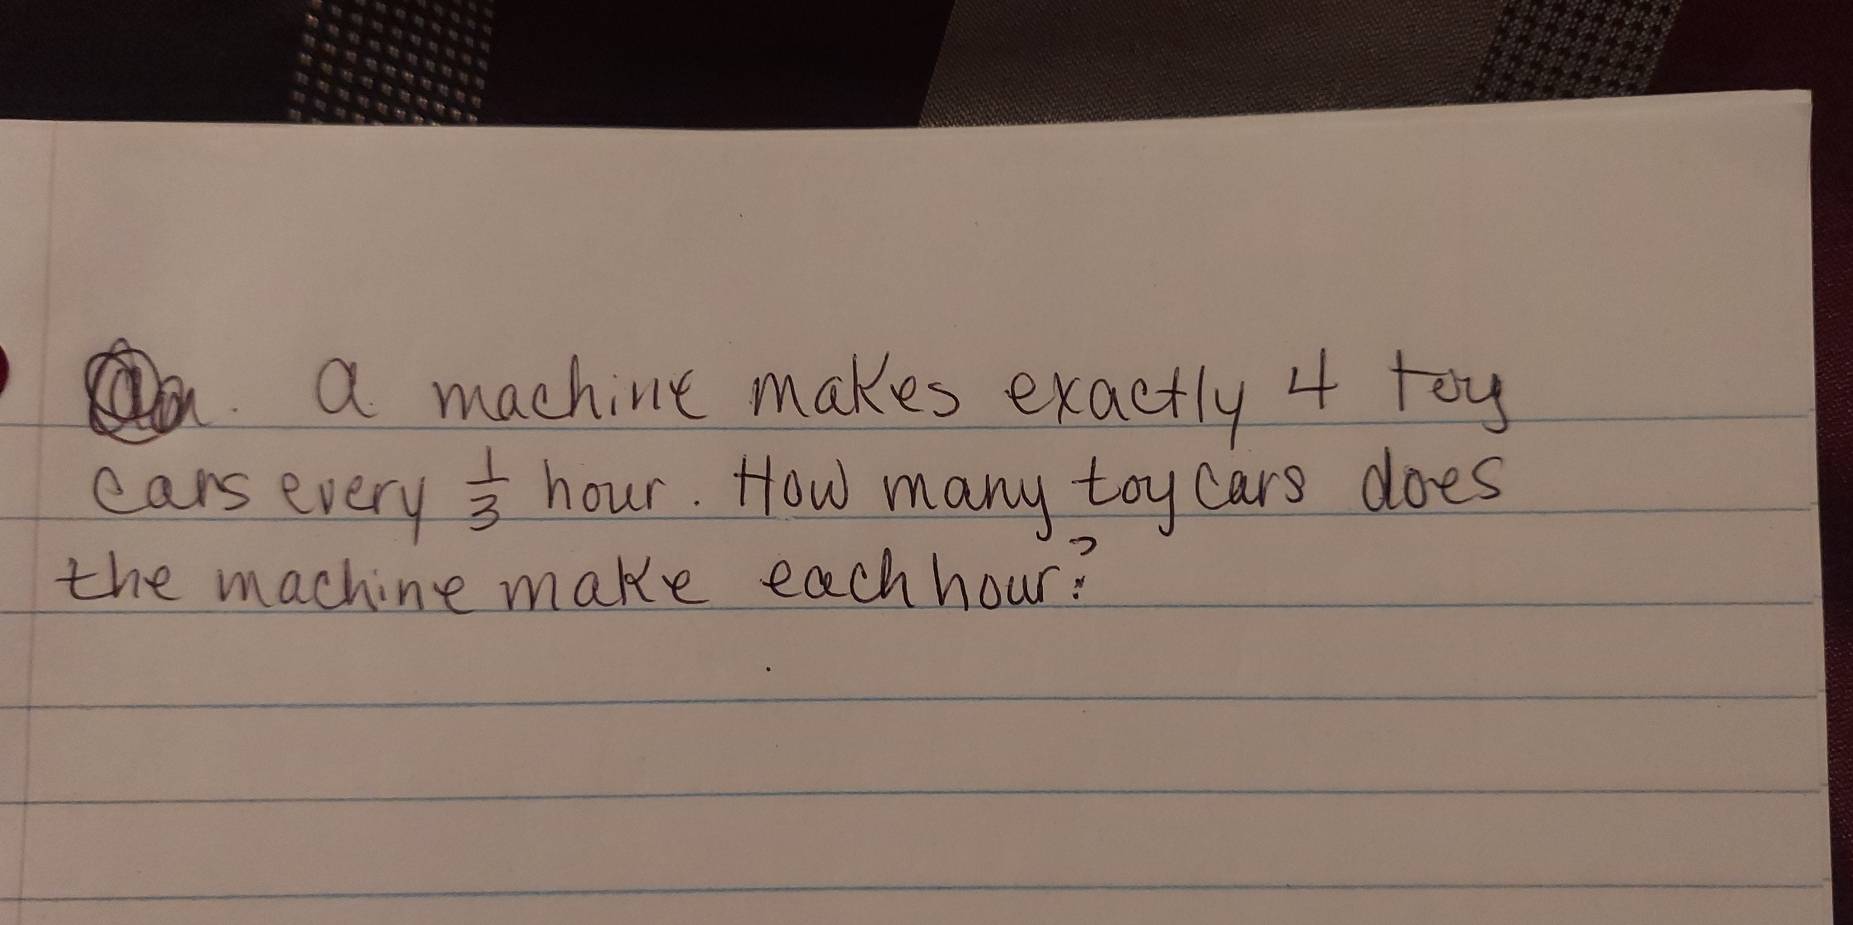 a machine makes exactly 4 toy
cars every 1/3 hour. How many toy cars does
the machine make each hour?